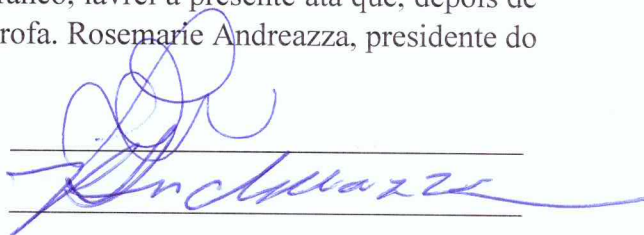 ranco, lavrei a presente ata que, depois de
rofa. Rosemarie Andreazza, presidente do
Andreazza